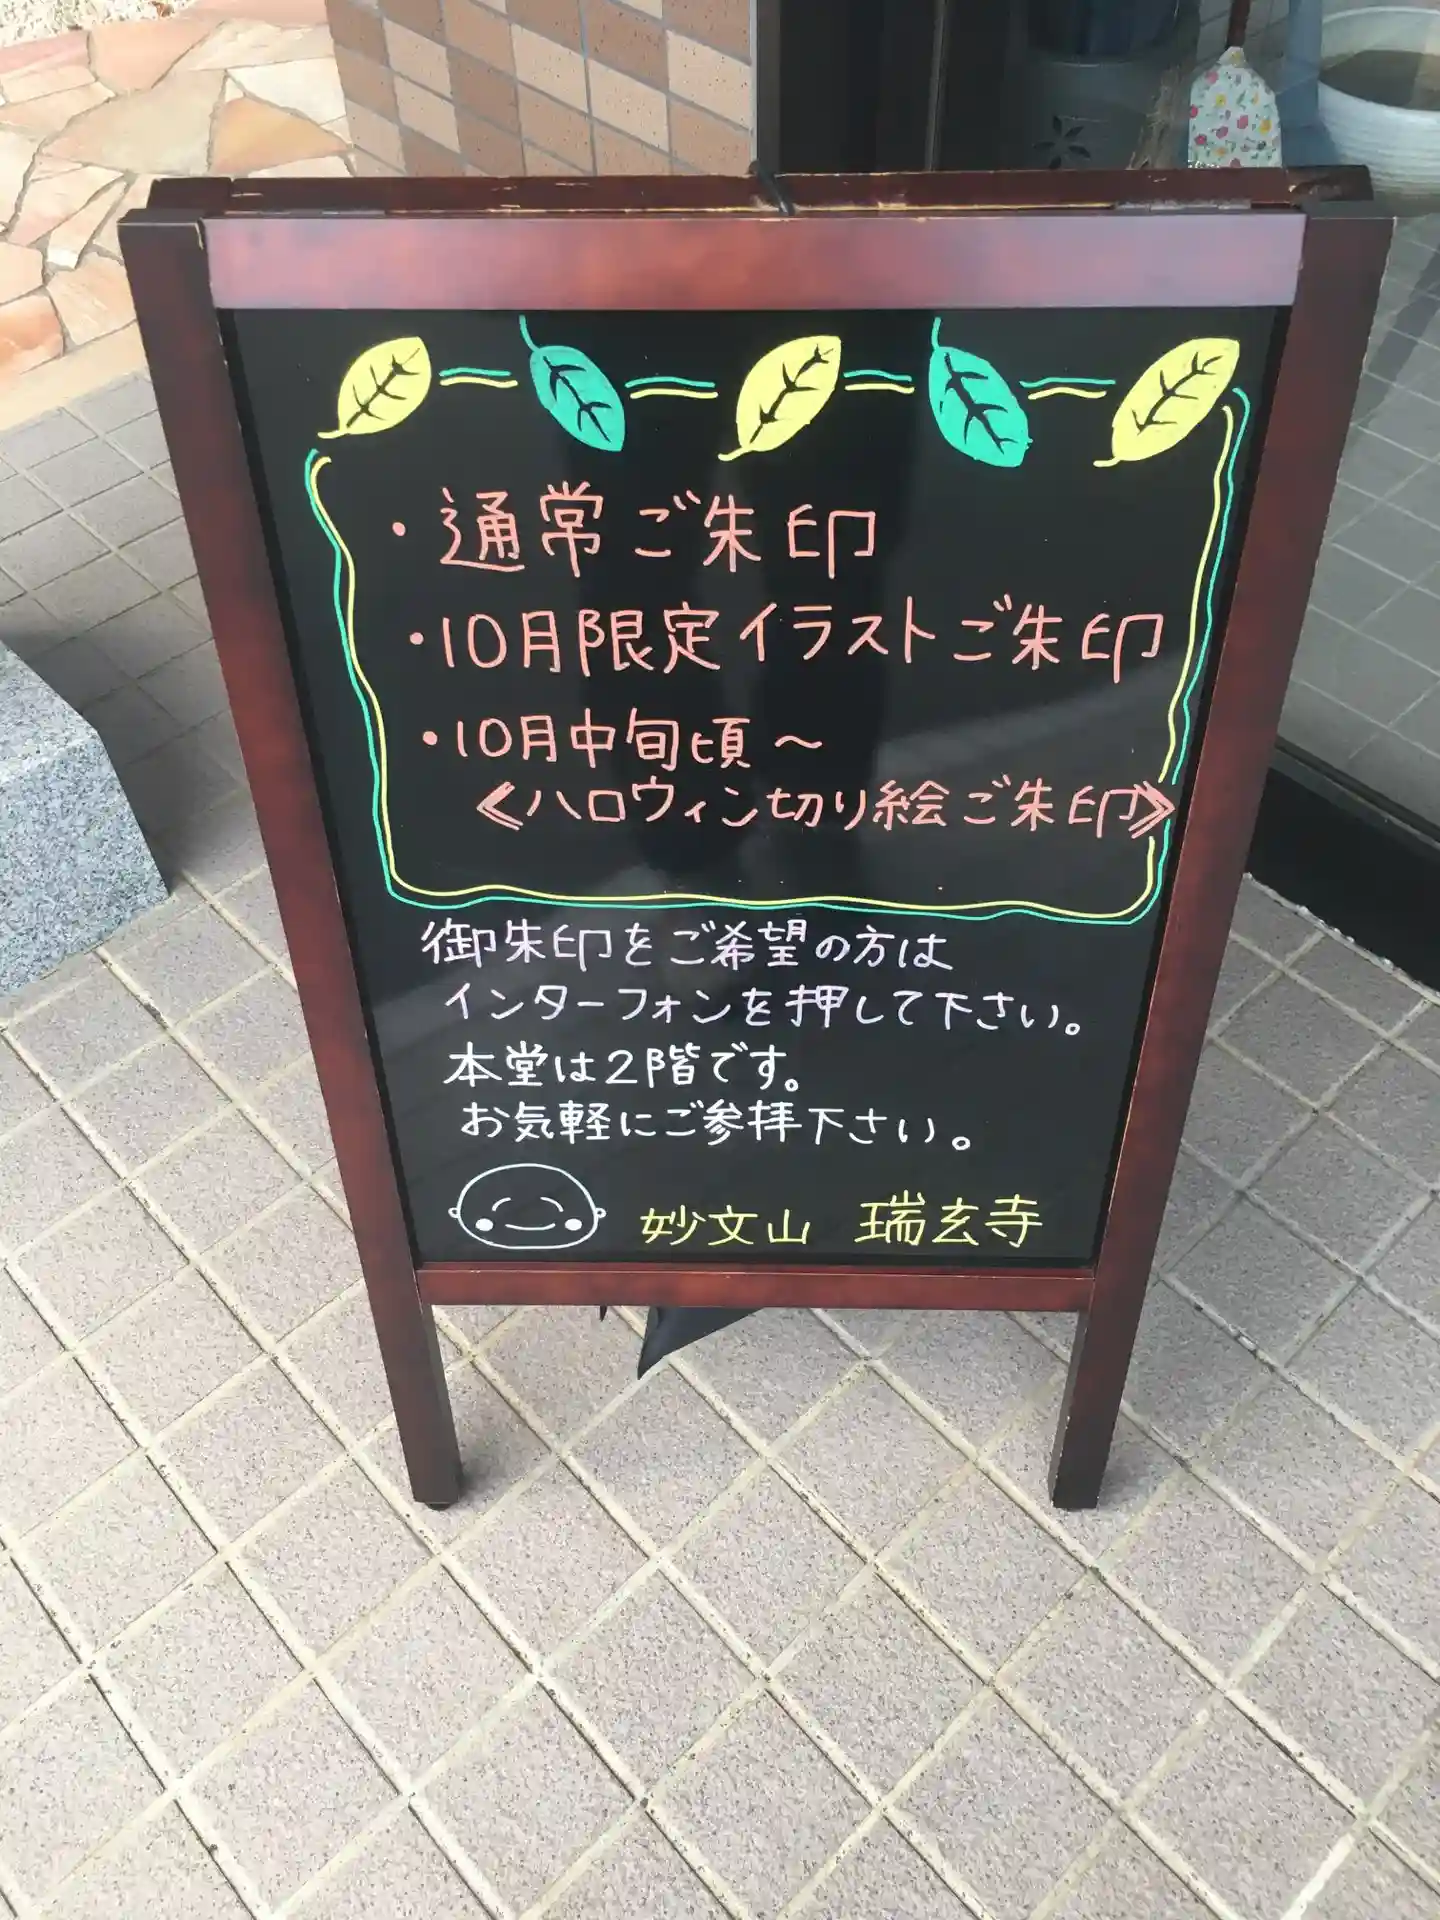 ・通常ご朱印
・10月限定イラストご朱印
・10月中旬頃～
《ハロウィン切り絵ご朱印》
御朱印をご希望の方は
インターフォンを押して下さい。
本堂は2階です。
お気軽にご参拝下さい。
妙文山 瑞玄寺